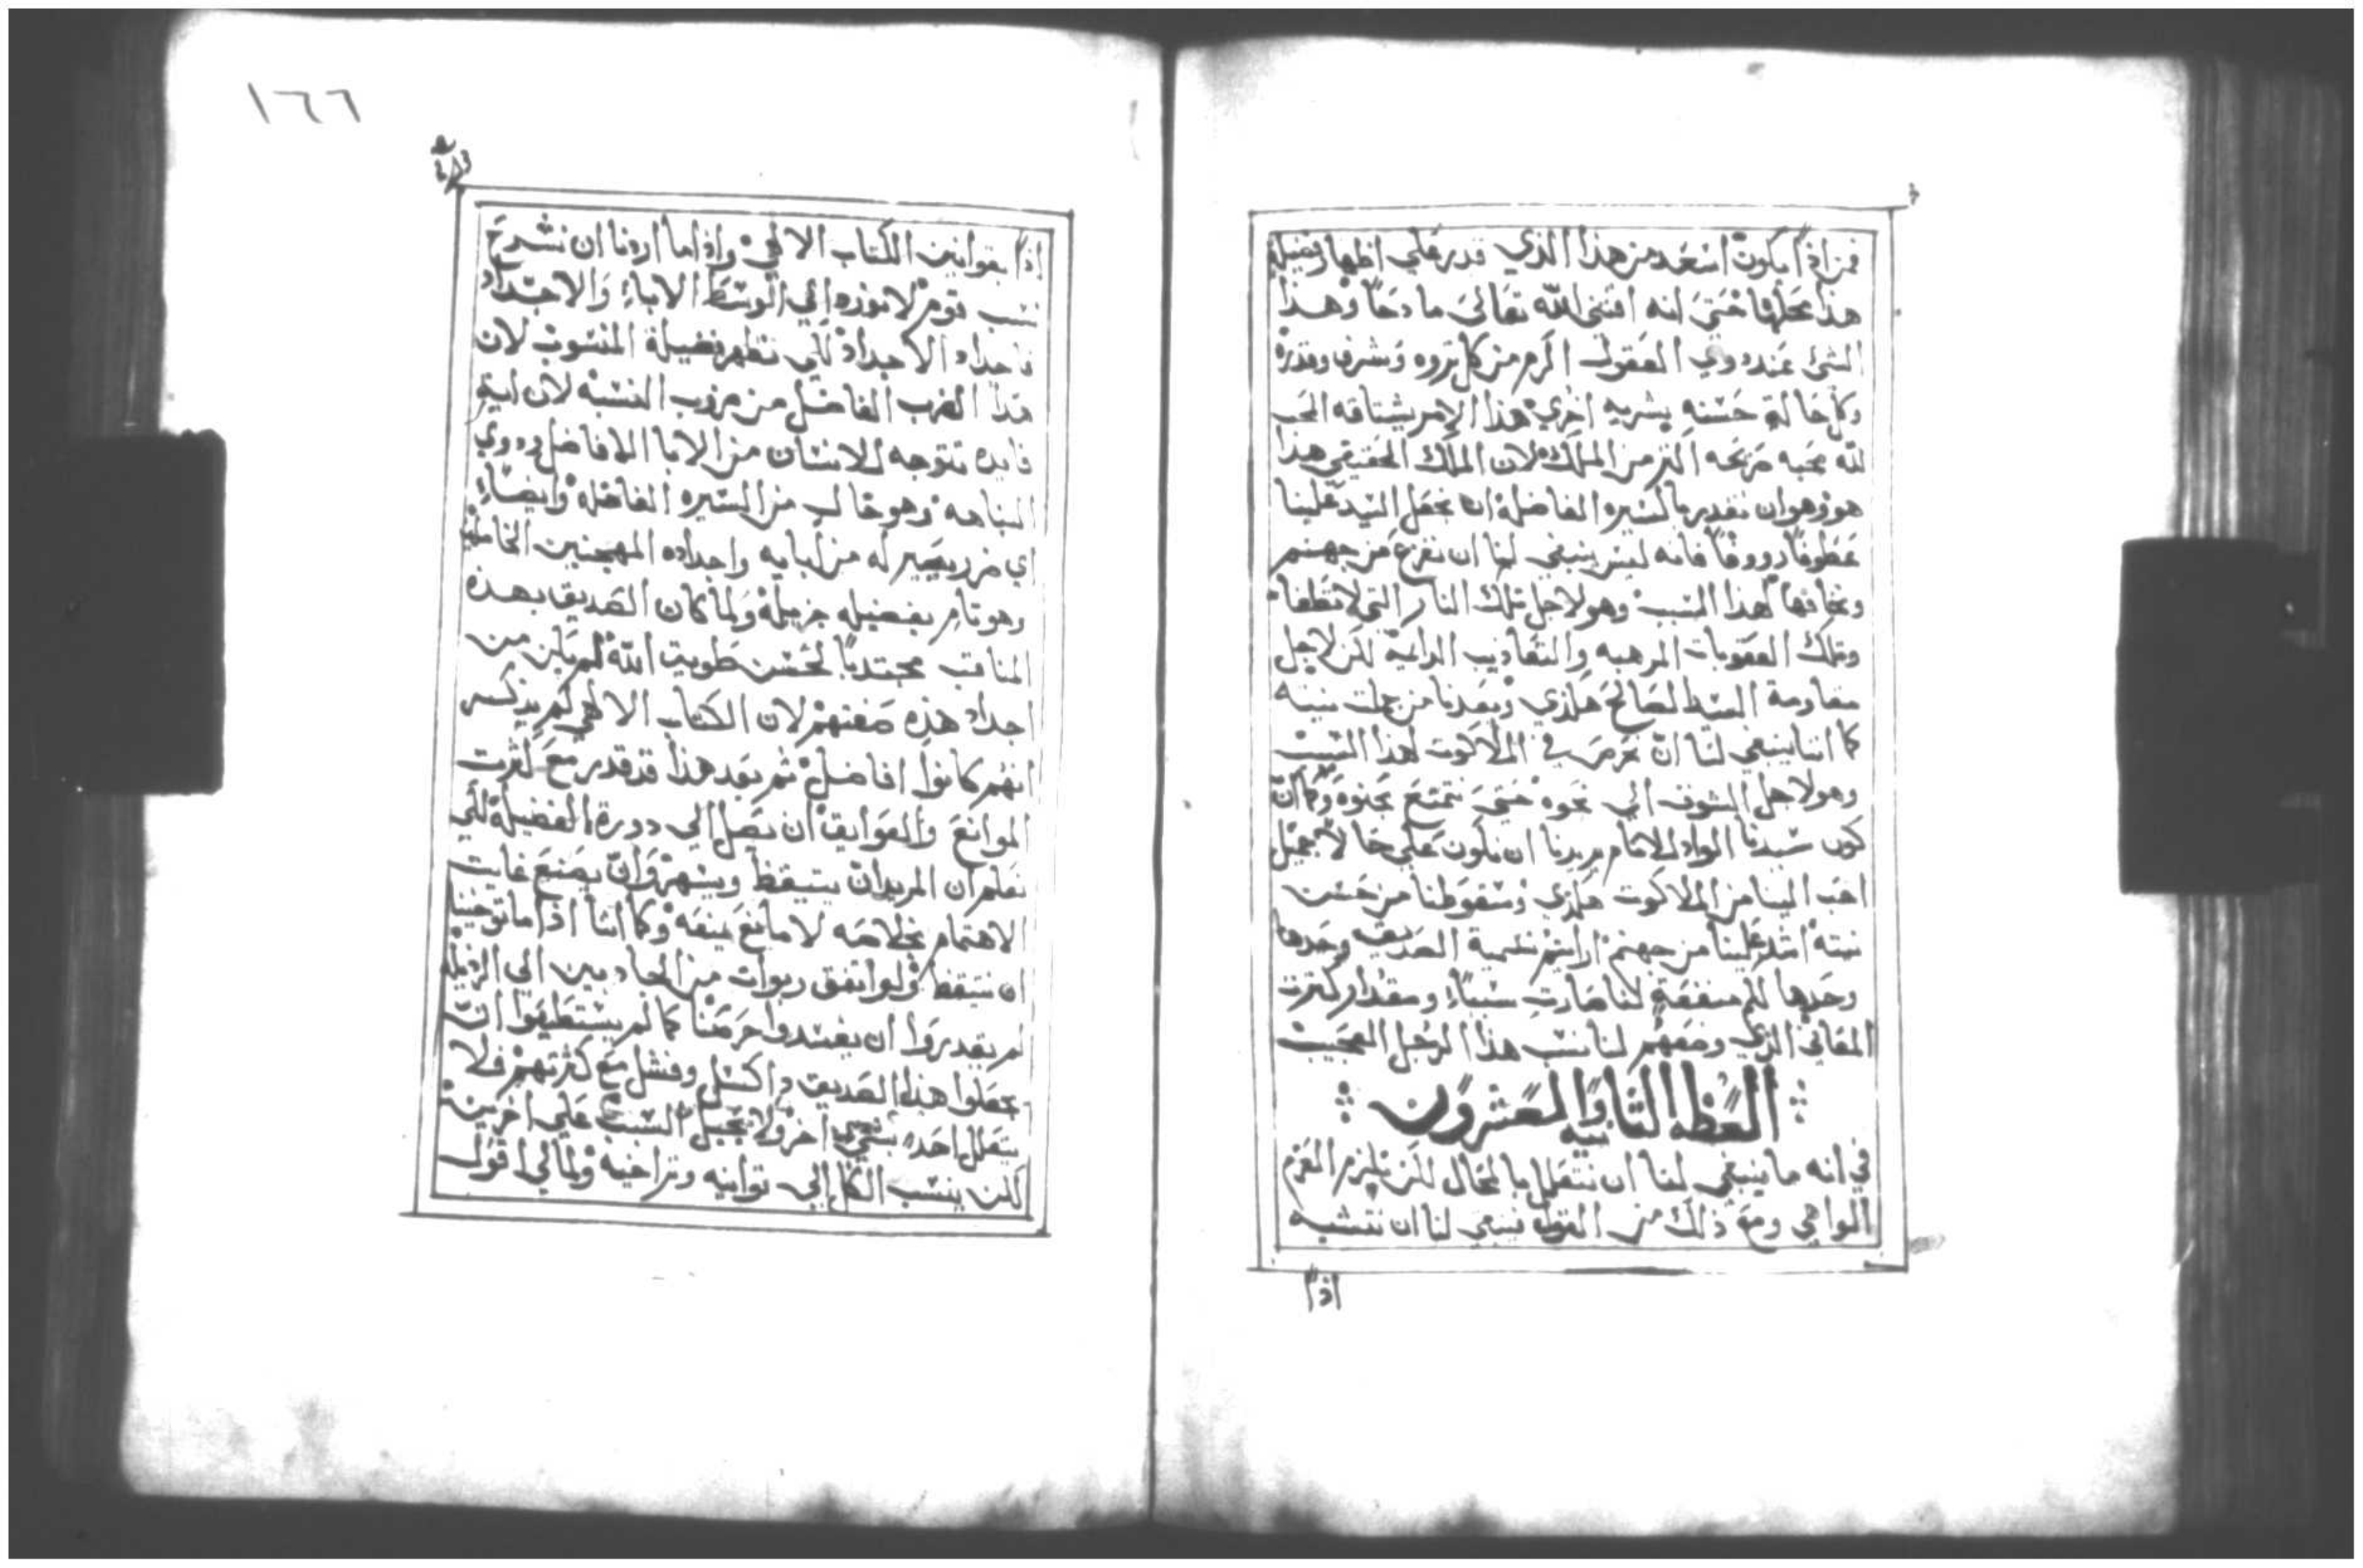 فمن اذًا يكون اسعد من هذا الذي قدر علي اظهار فضيلة
هذا محلها حتي انه اقتني الله تعالي مادحًا وهذا
الشي عند دوي العقول اكرم من كل تروه وشرف وقدرة
وكل حالة حسنه بشريه اخري هذا الامر يشتاقه المحب
لله محبه صريحه اكتر من الملك لان الملك الحقيقي هذا
هو وهو ان نقدر بالسيره الفاضلة ان نجعل السيد علينا
عطوفًا رووفًا فانه ليس ينبغي لنا ان نفزع من جهنم
ونخافها لهذا السبب وهو لاجل تلك النار التي لا تطفا
وتلك العقوبات المرهبه والتعاديب الدايمة لكن لاجل
مقاومة السيد الصالح هكذي وبعدنا من جملت نيته
كما اننا ينبغي لنا ان نحرص في الملاكوت لهذا السبب
وهو لاجل الشوق الي نحوه حتي نتمتع بحنوه وكما ان
كون سيدنا الواد للانام يريدنا ان نكون علي حالا جميل
احب الينا من الملاكوت هكذي وسقوطنا من حسن
نيته اشد علينا من جهنم ارايتم تسمية الصديق وحدها
وحدها كم منفعة لنا صارت سببًا ومقدار كترت
المعاني الذي وضعهم لنا نسب هذا الرجل العجيب
العظه التانيه والعشرون
في انه ما ينبغي لنا ان نتعلل بالمحال لكن نلزم العزم
الواهي ومع ذلك من القول ينبغي لنا ان نتشبه
اذًا
١٦٦
اذًا بقوانين الكتاب الالهي واذا ما اردنا ان نشرح
نسب قوم لا نورد الي الوسط الاباء والاجداد
واجداد الاجداد لكي تظهر فضيلة المنسوب لان
هذا الضرب الفاضل من ضروب النسبه لان اية
فايده تتوجه للانسان من الابا الافاضل ودوي
النباهه وهو خال من السيره الفاضله وايضًا
اي ضرر يصير له من ابايه واجداده المهجنين الخاملين
وهو تام بفضيله جزيلة ولما كان الصديق بهذه
المناقب مجتدبًا لحسن طويت الله لم يكن من
اجداد هذه صفتهم لان الكتاب الالهي لم يذكر
انهم كانوا افاضل ثم بعد هذا قد قدر مع كثرت
الموانع والعوايق ان يصل الي دورة الفضيلة لكي
نعلم ان المريد ان يتيقظ ويسهر وان يصنع غايت
الاهتمام بخلاصه لا مانع يمنعه وكما اننا اذا ما توخينا
ان نتيقظ ولو اتفق ربوات من الجادبين الي الرذيله
لم يقدروا ان يفسدوا حرصنا كما لم يستطيعوا ان
يجعلوا هذا الصديق دا كسل وفشل مع كثرتهم فلا
يتعلل احد بشي اخر ولا يحيل السبب علي اخرين
لكن ينسب الكل الي توانيه وتراخيه ولما لي اقول